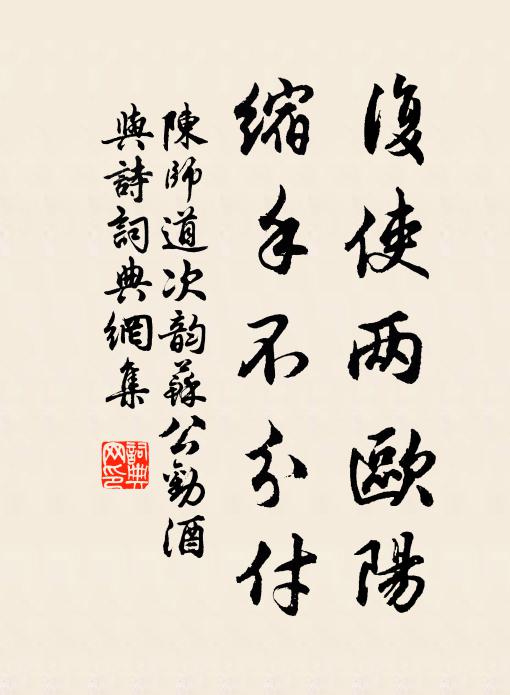 復使两歐陽
縮手不分付
陳師道次韵蘇公勸酒
與詩詞典網集
詞典
网印